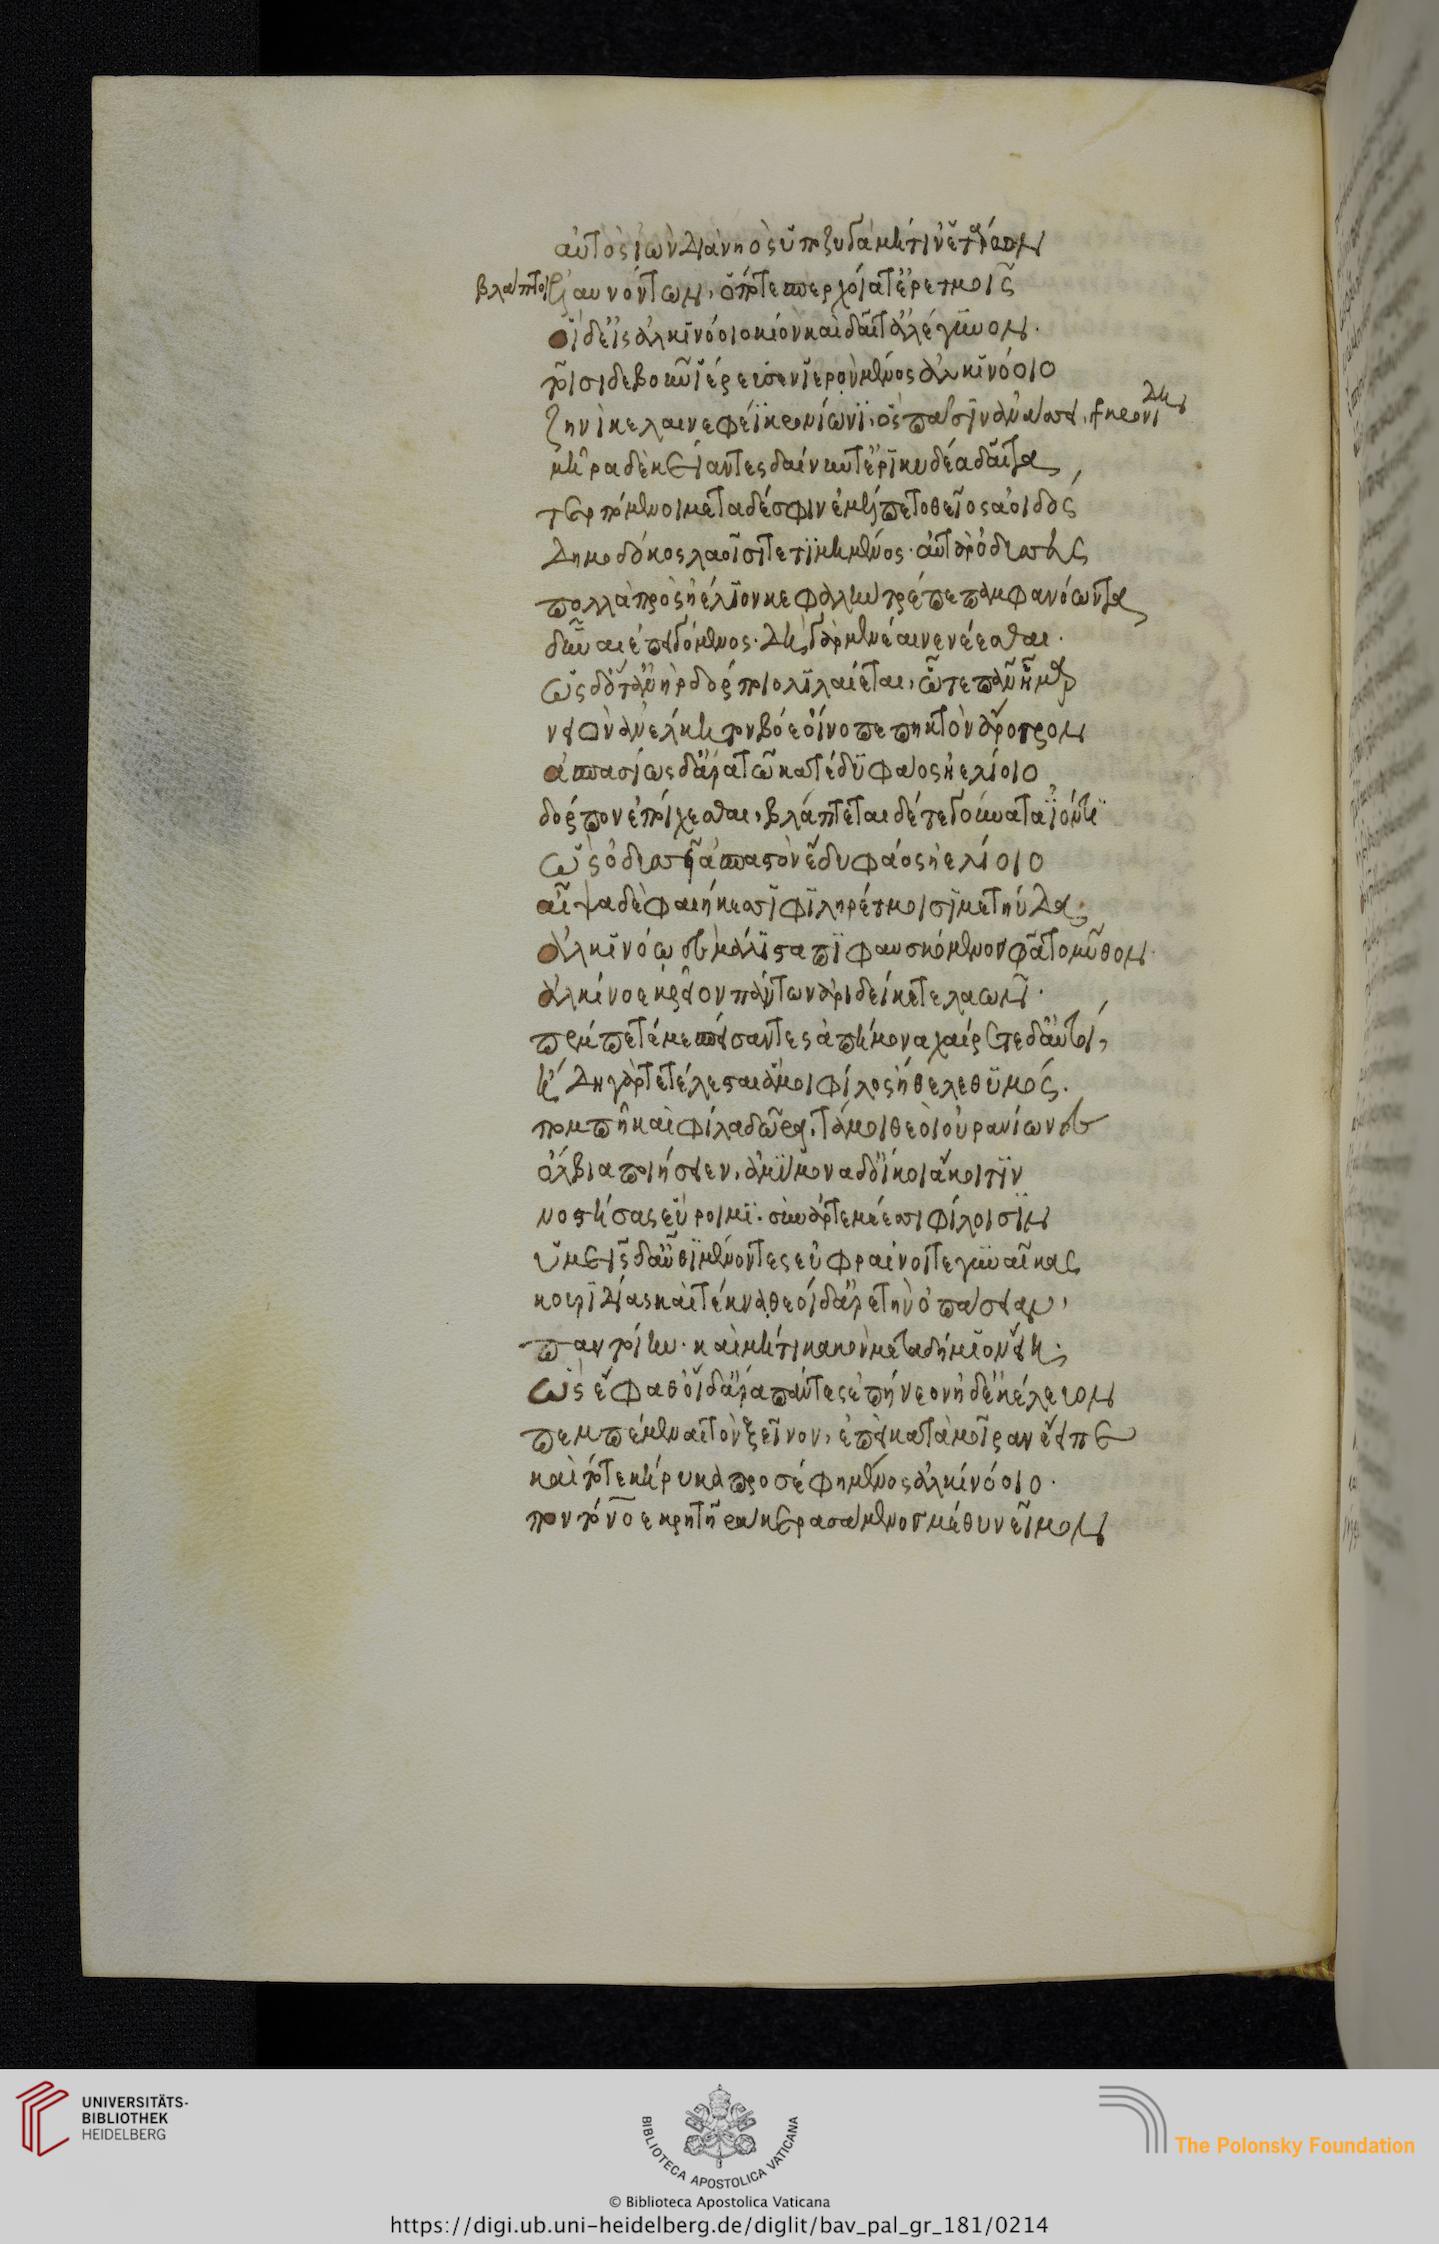 αὐτὸς ἰὼν διὰ νηὸς ὑπὸ ζυγὰ μήτιν ἑταίρων
βλάπτοι ἐλαυνόντων, ὁπότε σπερχοίατ' ἐρετμοῖς
οἱ δ' εἰς ἀλκινόοιο κίον καὶ δαῖτ' ἀλέγυνον.
τοῖσι δὲ βοῦν ἱέρευσ' ἱερὸν μένος ἀλκινόοιο
ζηνὶ κελαινεφέϊ κρονίωνϊ, ὃς πᾶσιν ἀνάσσει,
μῆρα δὲ κείαντες δαίνυντ' ἐρικυδέα δαῖτα,
τερπόμενοι μετὰ δέ σφιν ἐμέλπετο θεῖος ἀοιδὸς
δημόδοκος λαοῖσι τετιμημένος. αὐτὰρ ὀδυσσεὺς
πολλὰ πρὸς ἠέλιον κεφαλὴν τρέπε παμφανόωντα
δῦναι ἐπειγόμενος. δὴ γὰρ μενέαινε νέεσθαι.
ὡς δ' ὅτ' ἀνὴρ δόρποιο λιλαίεται, ᾧτε πανῆμαρ
νειὸν ἀνέλκητον βόε οἴνοπε πηκτὸν ἄροτρον
ἀσπασίως δ' ἄρα τῷ κατέδυ φάος ἠελίοιο
δόρπον ἐποίχεσθαι, βλάπτεται δέ τε γούνατ' ἰόντι
ὣς ὀδυσῆ' ἀσπαστὸν ἔδυ φάος ἠελίοιο
αἶψα δὲ φαιήκεσσι φιληρέτμοισι μετηύδα.
ἀλκινόῳ δὲ μάλιστα πιφαυσκόμενος φάτο μῦθον.
ἀλκίνοε κρεῖον πάντων ἀριδείκετε λαῶν.
πέμπετέ με σπείσαντες ἀπήμονα χαίρετε δ' αὐτοί,
ἤδη γὰρ τετέλεσται ἅ μοι φίλος ἤθελε θυμός.
πομπὴ καὶ φίλα δῶρα. τά μοι θεοὶ οὐρανίωνες
ὄλβια ποιήσειεν, ἀμύμονα δ' οἴκοι ἄκοιτιν
νοστήσας εὕροιμι. σὺν ἀρτεμέεσσι φίλοισιν
ὑμεῖς δ' αὖθι μένοντες εὐφραίνοιτε γυναῖκας
κουριδίας καὶ τέκνα. θεοὶ δ' ἀρετὴν ὀπάσειαν,
παντοίην. καὶ μήτι κακὸν μεταδήμιον εἴη.
ὣς ἔφαθ' οἱ δ' ἄρα πάντες ἐπήνεον ἠδ' ἐκέλευον
πεμπέμεναι τὸν ξεῖνον, ἐπεὶ κατὰ μοῖραν ἔειπε
καὶ τότε κήρυκα προσέφη μένος ἀλκινόοιο.
ποντόνοε κρητῆρα κερασάμενος μέθυ νεῖμον
UNIVERSITÄTS-
BIBLIOTHEK
HEIDELBERG
BIBLIOTECA APOSTOLICA VATICANA
The Polonsky Foundation
© Biblioteca Apostolica Vaticana
https://digi.ub.uni-heidelberg.de/diglit/bav_pal_gr_181/0214